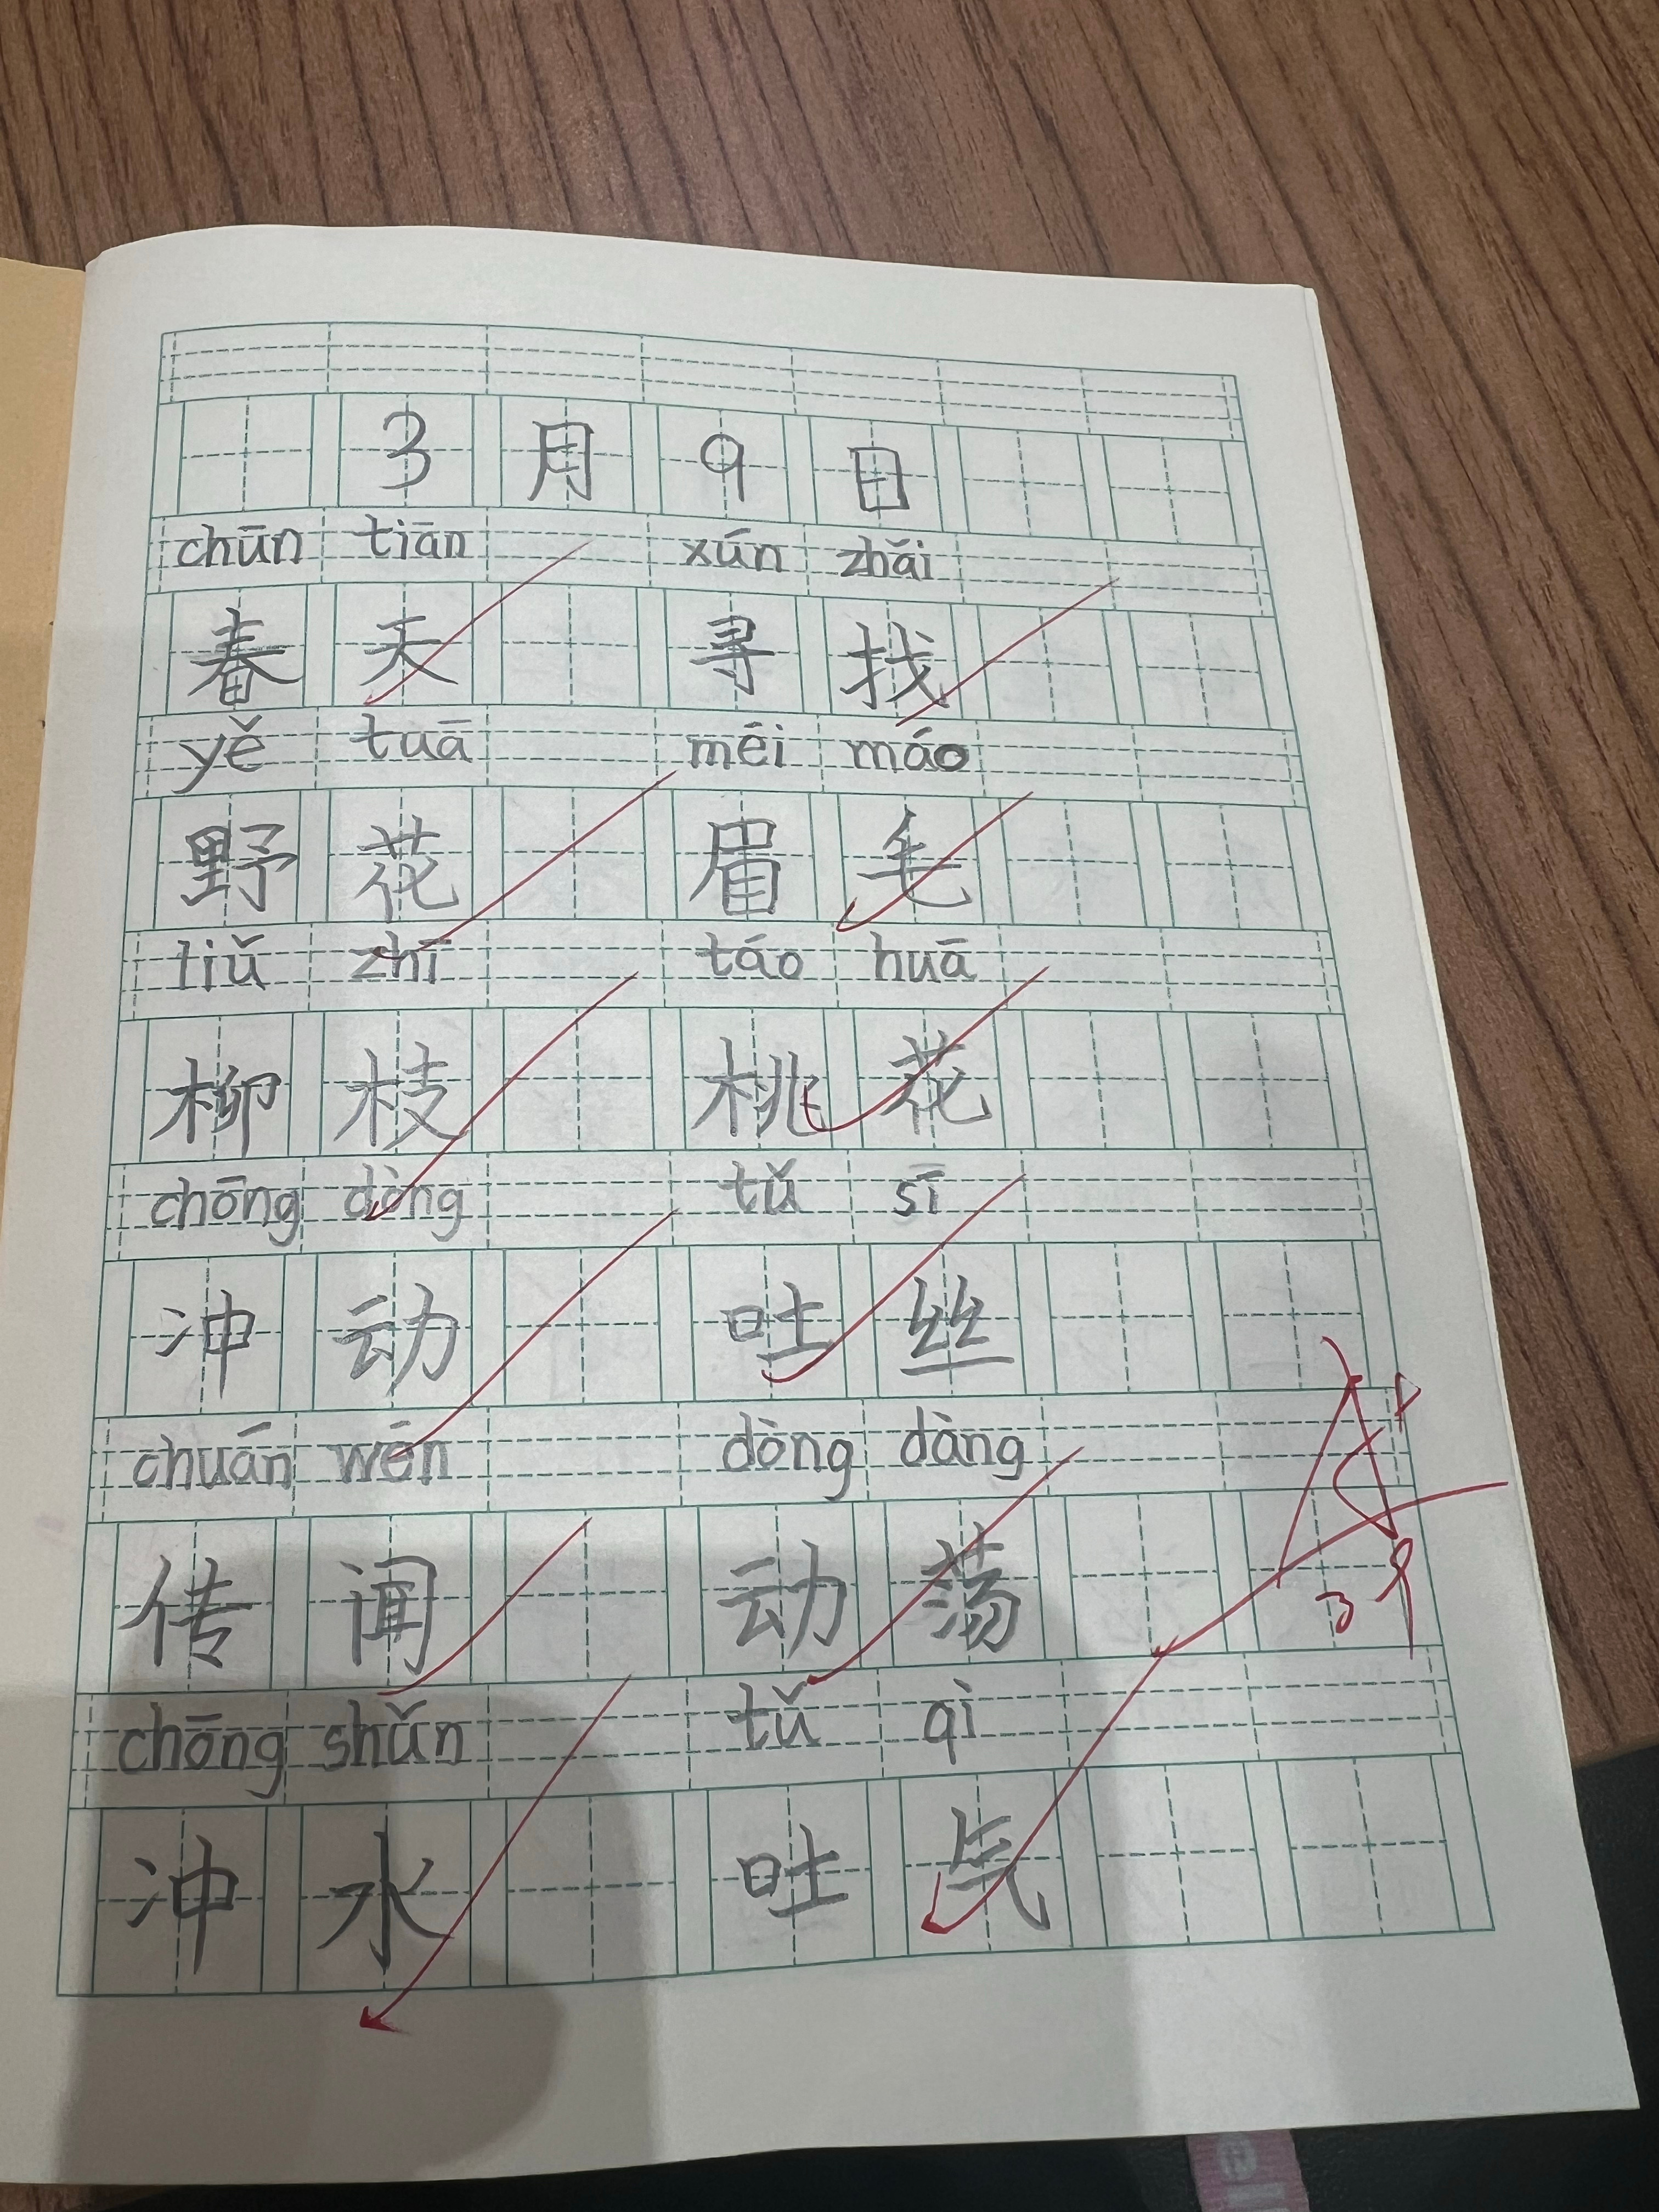 3月9日
chūn tiān xún zhǎi
春天 寻找
yě tuā méi máo
野花 眉毛
liǔ zhī táo huā
柳枝 桃花
chōng dòng tǔ sī
冲动 吐丝
chuán wén dòng dàng
传闻 动荡
chōng shǔn tǔ qì
冲水 吐气